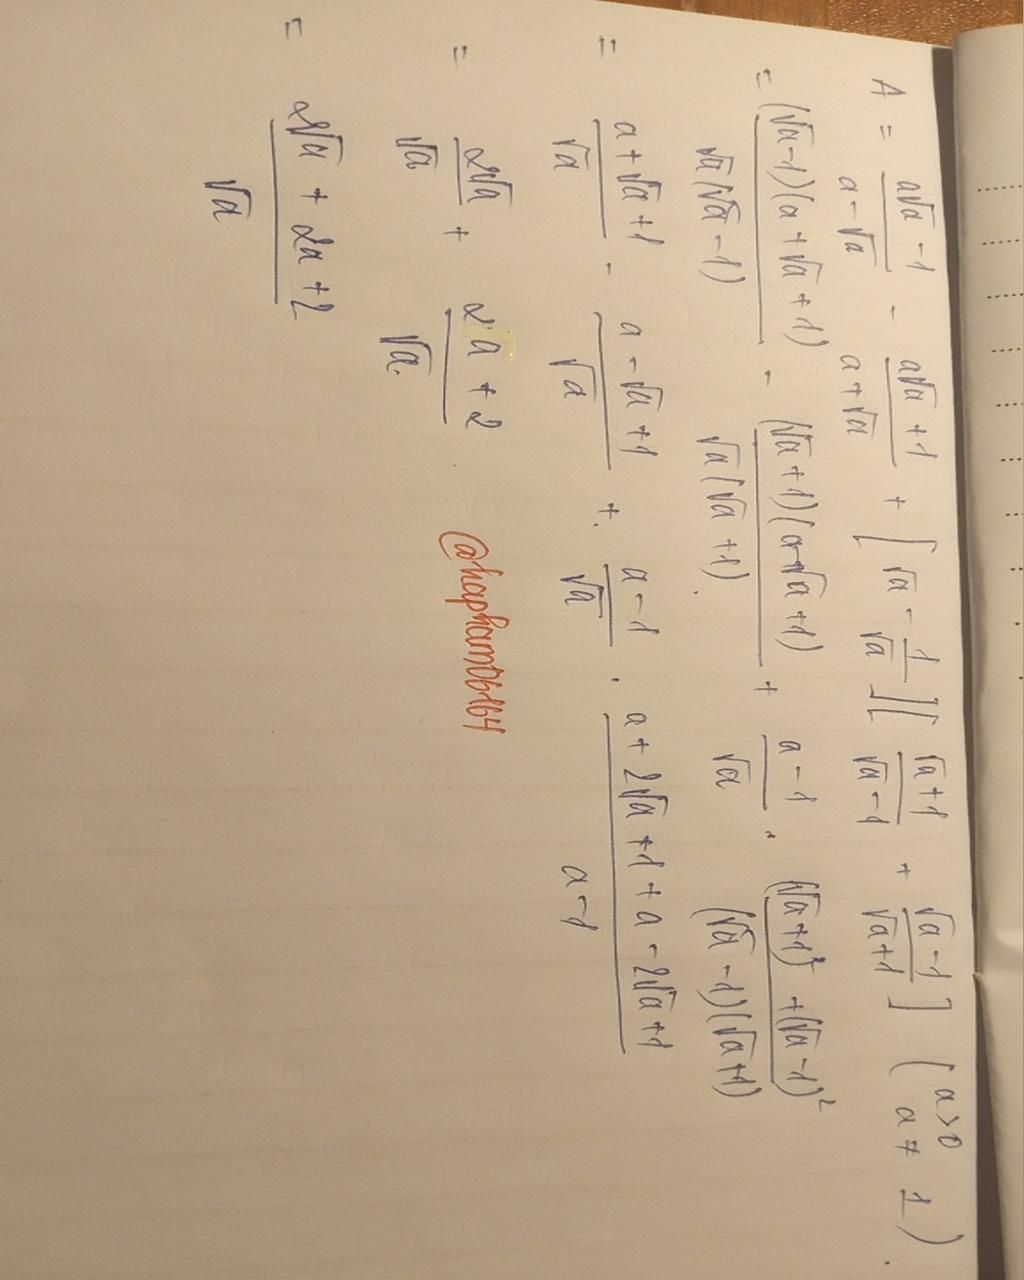 A = (a√a - 1)/(a - √a) - (a√a + 1)/(a + √a) + [√a - 1/√a][(√a + 1)/(√a - 1) + (√a - 1)/(√a + 1)] (a > 0 a ≠ 1).
= (√a - 1)(a + √a + 1)/(√a(√a - 1)) - (√a + 1)(a - √a + 1)/(√a(√a + 1)) + (a - 1)/√a . ((√a + 1)² + (√a - 1)²)/((√a - 1)(√a + 1))
= (a + √a + 1)/√a - (a - √a + 1)/√a + (a - 1)/√a . (a + 2√a + 1 + a - 2√a + 1)/(a - 1)
= 2√a/√a + (2a + 2)/√a.
@hapham06164
= (2√a + 2a + 2)/√a